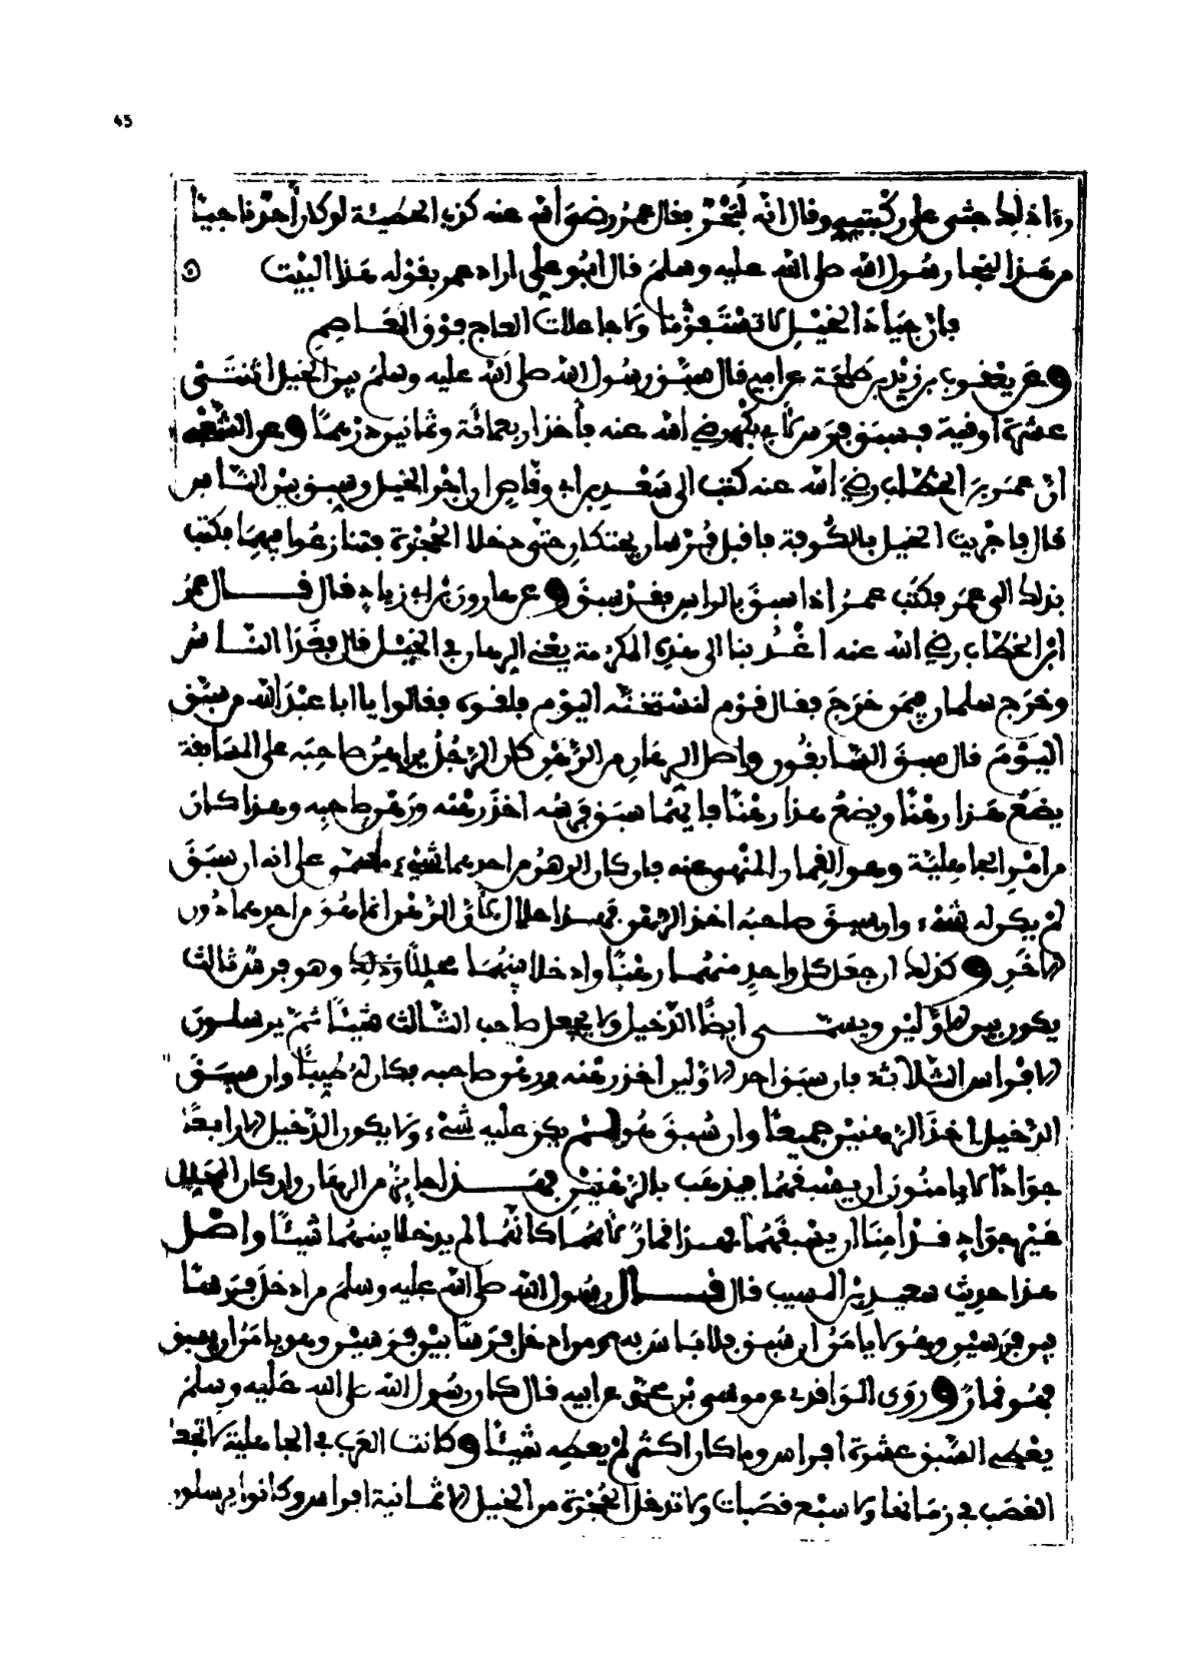 45
رءا ذلك جثى على ركبتيه وقال انه لبحر فقال عمر رضى الله عنه كذب الحطيئة لو كان أحد ناجيًا
من هذا لنجا رسول الله صلى الله عليه وسلم قال ابو علي اراد عمر بقوله هذا البيت
فان جياد الخيل لا تستفزنا ولا جاعلات العاج فوق المعاصم
وعن يعقوب بن زيد بن طلحة عن ابيه قال سبق رسول الله صلى الله عليه وسلم بين الخيل اثنتى
عشرة اوقية فسبق فرس لأبي بكر رضي الله عنه فأخذ اربعمائة وثمانين درهمًا وعن الشعبي
ان عمر بن الخطاب رضي الله عنه كتب الى سعد بن ابي وقاص ان اجر الخيل وسبق بين الناس
قال فاجريت الخيل بالكوفة فاقبل فرسان يحتكان حتى دخلا الحجرة فتنازعوا فيهما فكتب
بذلك الى عمر فكتب عمر اذا سبق بالراس فقد سبق وعن هارون بن ابي زياد قال قال عمر
ابن الخطاب رضي الله عنه اغد بنا الى هذه المكرمة يعني الرهان في الخيل قال فغدا الناس
وخرج سلمان فيمن خرج فقال قوم لنستخفنه اليوم فلقوه فقالوا يا ابا عبد الله من سبق
اليوم قال سبق السابقون واصل الرهان من الرهن كان الرجل يراهن صاحبه على المسابقة
يضع هذا رهنًا ويضع هذا رهنًا فايهما سبق فرسه اخذ رهنه ورهن صاحبه وهذا كان
من امر الجاهلية وهو القمار المنهي عنه فان كان الرهن من احدهما شيء مسمى على انه ان سبق
لم يكن له شيء وان سبق صاحبه اخذ الرهن فهذا حلال لأن الرهن انما هو من احدهما دون
الاخر وكذلك ان جعل كل واحد منهما رهنًا وادخلا بينهما محللًا وهو فرس ثالث
يكون بين الاولين ويسمى ايضًا الدخيل ولا يجعل صاحب الثالث شيئًا ثم يرسلون
الافراس الثلاثة فان سبق احد الاولين اخذ رهنه ورهن صاحبه فكان له طيبًا وان سبق
الدخيل اخذ الرهنين جميعًا وان سبق هو لم يكن عليه شيء ولا يكون الدخيل الا رابعًا
جوادًا لا يامنون ان يسبقهما فيذهب بالرهنين فهذا جائز من الرهان وان كان المحلل
غير جواد قد امنا ان يسبقهما فهذا قمار لأنهما كانهما لم يدخلا بينهما شيئًا واصل
هذا حديث سعيد بن المسيب قال قال رسول الله صلى الله عليه وسلم من ادخل فرسًا
بين فرسين وهو لا يامن ان يسبق فلا باس به ومن ادخل فرسًا بين فرسين وهو يامن ان يسبق
فهو قمار وروى الواقدي عن موسى بن محمد عن ابيه قال كان رسول الله صلى الله عليه وسلم
يعطي السبق عشرة افراس وما كان اكثر لم يعطه شيئًا وكانت العرب في الجاهلية لا تجد
القصب في زمانها ولا سبع قصبات ولا تدخل الحجرة من الخيل الا ثمانية افراس وكانوا يرسلون